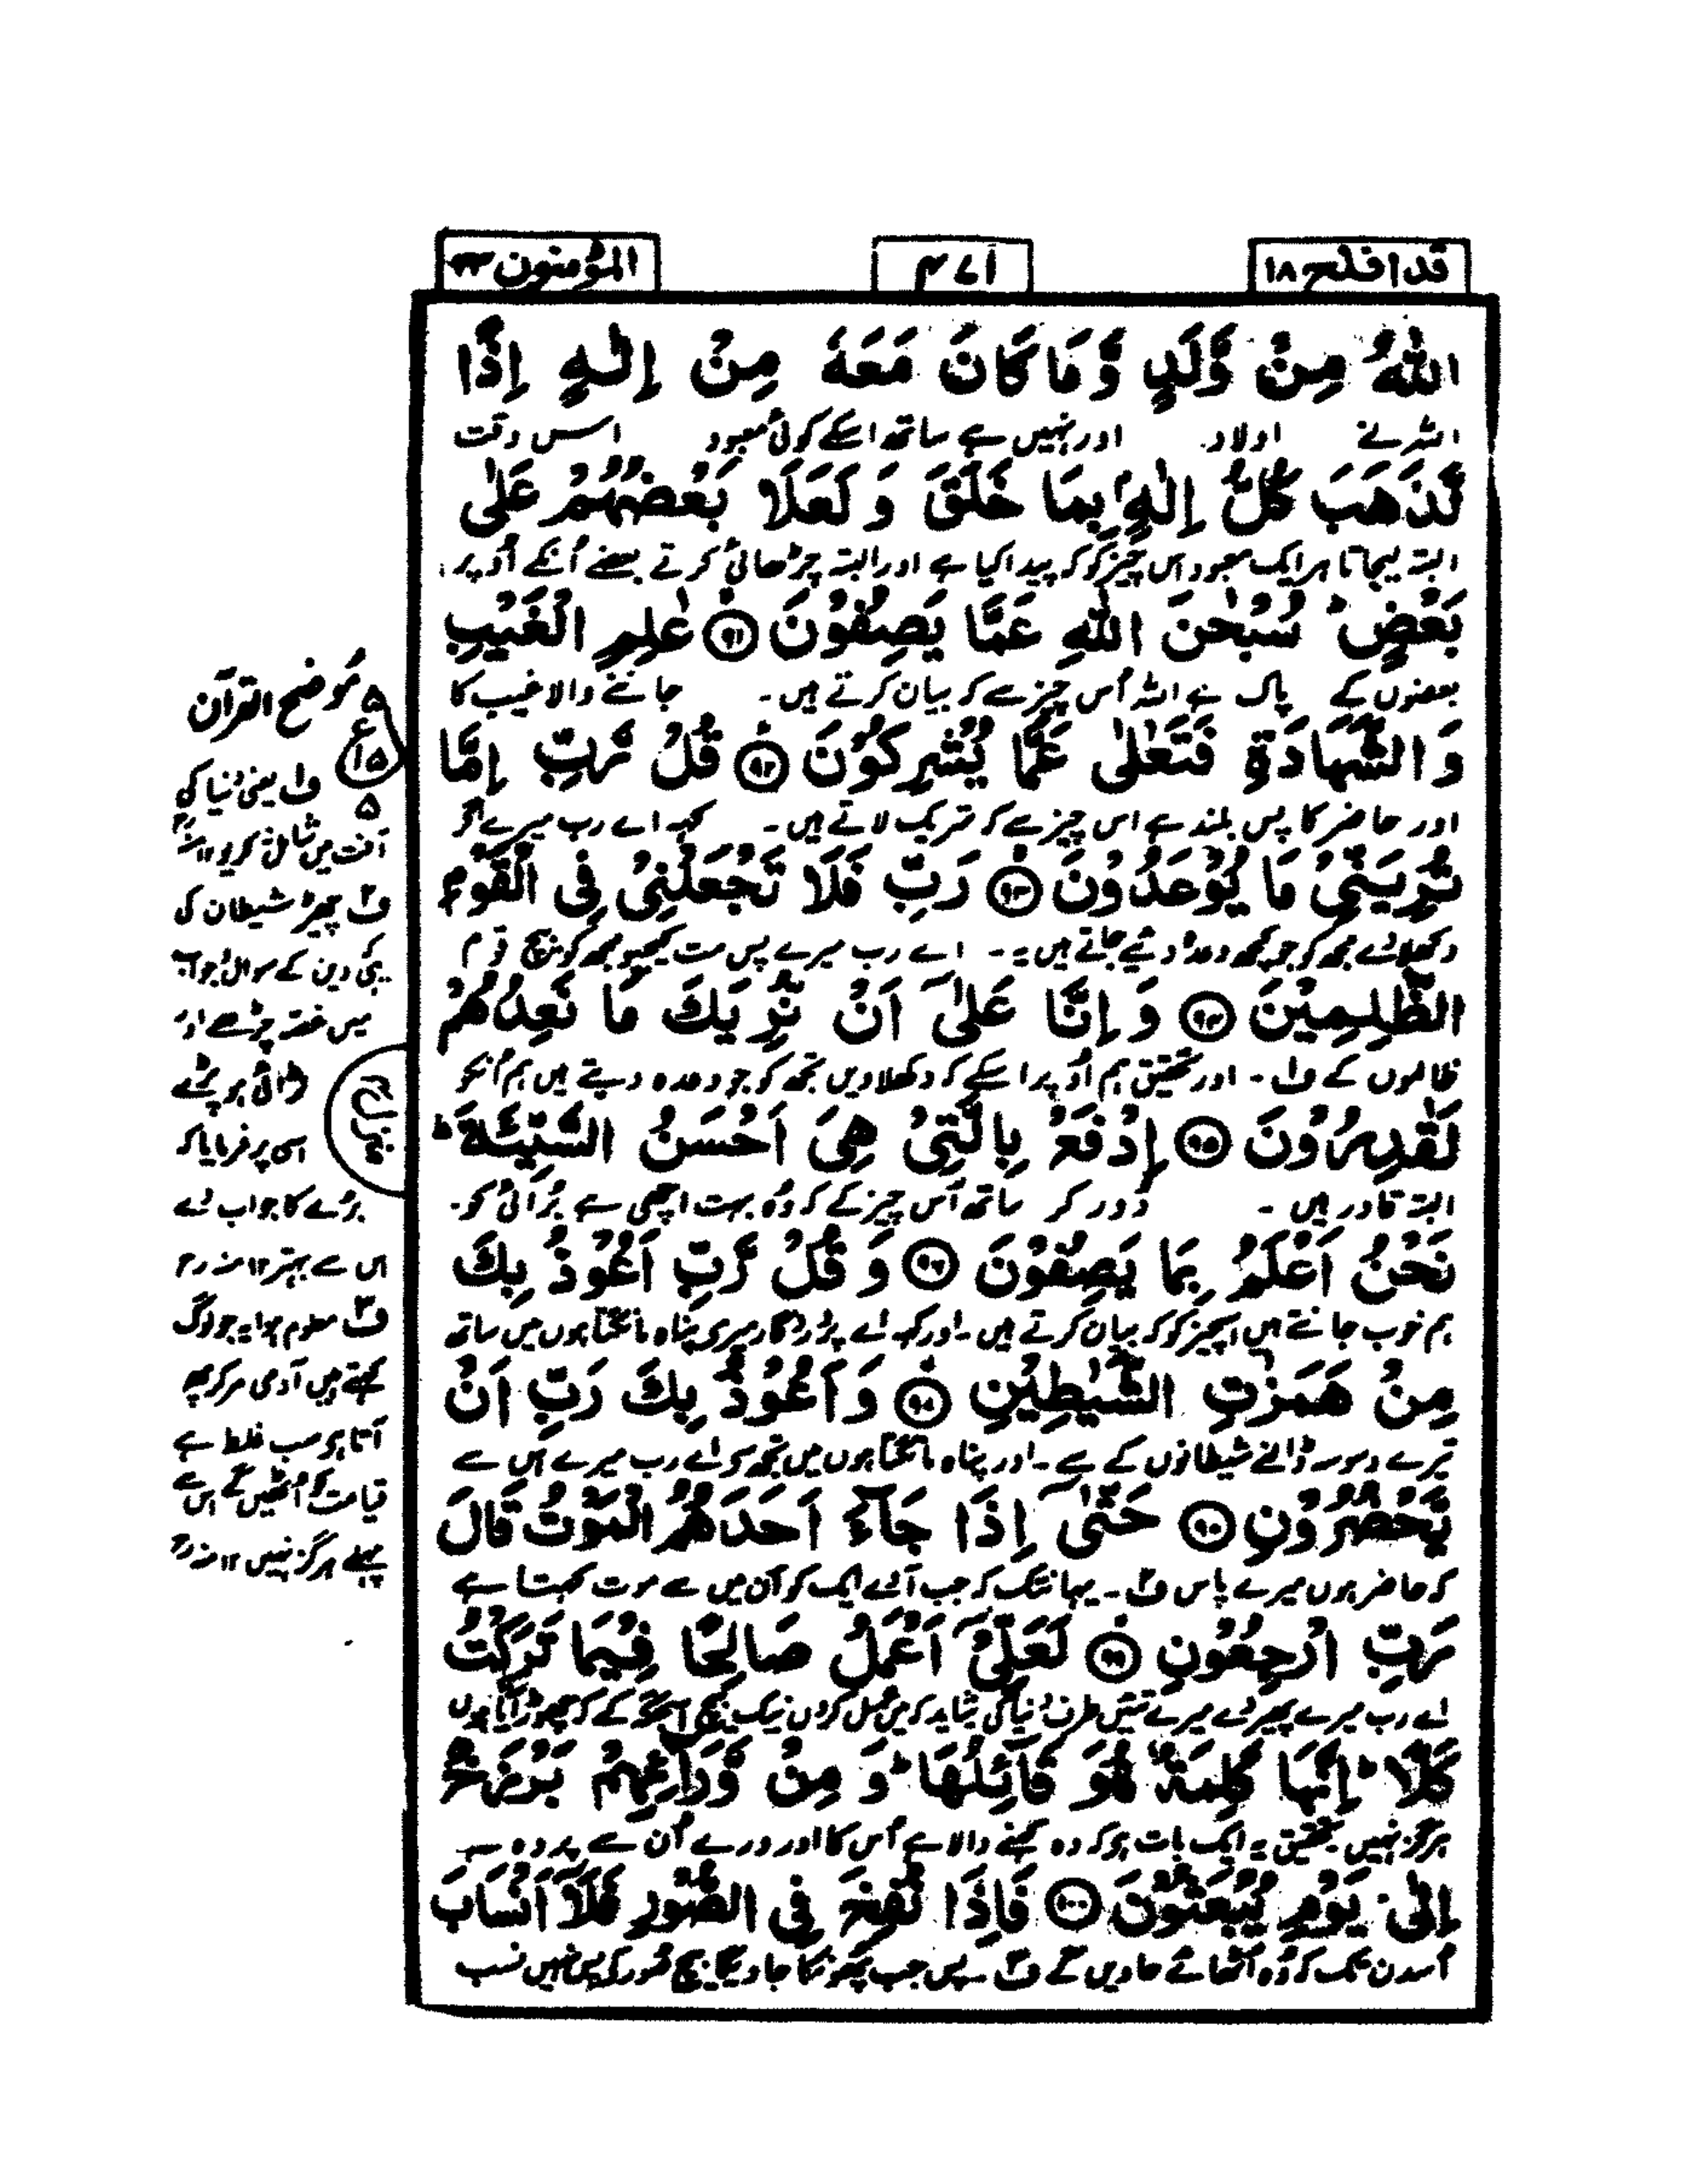 قد افلح ۱۸
۴۷۱
المؤمنون ۲۳
اللهُ مِنْ وَّلَدٍ وَّمَا كَانَ مَعَهٗ مِنْ اِلٰهٍ اِذًا
اللہ نے اولاد اور نہیں ہے ساتھ اسکے کوئی معبود اسس وقت
لَّذَهَبَ كُلُّ اِلٰهٍۭ بِمَا خَلَقَ وَ لَعَلَا بَعْضُهُمْ عَلٰى
البتہ لیجاتا ہر ایک معبود اس چیز کو کہ پیدا کیا ہے اور البتہ چڑھائی کرتے بعضے اُنکے اُوپر
بَعْضٍ ؕ سُبْحٰنَ اللهِ عَمَّا يَصِفُوْنَ ۹۱ عٰلِمِ الْغَيْبِ
بعضوں کے پاک ہے اللہ اُس چیز سے کہ بیان کرتے ہیں۔ جاننے والا غیب کا
وَ الشَّهَادَةِ فَتَعٰلٰى عَمَّا يُشْرِكُوْنَ ۹۲ قُلْ رَّبِّ اِمَّا
اور حاضر کا پس بلند ہے اس چیز سے کہ شریک لاتے ہیں۔ کہہ اے رب میرے اگر
تُرِيَنِّيْ مَا يُوْعَدُوْنَ ۹۳ رَبِّ فَلَا تَجْعَلْنِيْ فِي الْقَوْمِ
دکھلائے مجھ کو جو کچھ وعدہ دئیے جاتے ہیں۔ اے رب میرے پس مت کیجیو مجھ کو بیچ قوم
الظّٰلِمِيْنَ ۹۴ وَ اِنَّا عَلٰٓى اَنْ نُّرِيَكَ مَا نَعِدُهُمْ
ظالموں کے ف۱۔ اور تحقیق ہم اُوپر اسکے کہ دکھلاویں تجھ کو جو وعدہ دیتے ہیں ہم اُنکو
لَقٰدِرُوْنَ ۹۵ اِدْفَعْ بِالَّتِيْ هِيَ اَحْسَنُ السَّيِّئَةَ ؕ
البتہ قادر ہیں۔ دُور کر ساتھ اُس چیز کے کہ وُہ بہت اچھی ہے بُرائی کو۔
نَحْنُ اَعْلَمُ بِمَا يَصِفُوْنَ ۹۶ وَ قُلْ رَّبِّ اَعُوْذُ بِكَ
ہم خوب جانتے ہیں اسچیز کو کہ بیان کرتے ہیں۔ اور کہہ اے پروردگار میرے پناہ مانگتا ہوں میں ساتھ
مِنْ هَمَزٰتِ الشَّيٰطِيْنِ ۹۷ وَ اَعُوْذُ بِكَ رَبِّ اَنْ
تیرے وسوسہ ڈالنے شیطانوں کے سے۔ اور پناہ مانگتا ہوں میں تجھ سے اے رب میرے اس سے
يَّحْضُرُوْنِ ۹۸ حَتّٰٓى اِذَا جَآءَ اَحَدَهُمُ الْمَوْتُ قَالَ
کہ حاضر ہوں میرے پاس ف۲۔ یہانتک کہ جب آئے ایک کو اُن میں سے موت کہتا ہے
رَبِّ ارْجِعُوْنِ ۹۹ لَعَلِّيْٓ اَعْمَلُ صَالِحًا فِيْمَا تَرَكْتُ
اے رب میرے پھیر دے میرے تئیں طرف دُنیا کی شاید کہ میں عمل کروں نیک بیچ اسچیز کے کہ چھوڑ آیا ہوں
كَلَّا ؕ اِنَّهَا كَلِمَةٌ هُوَ قَآئِلُهَا ؕ وَ مِنْ وَّرَآئِهِمْ بَرْزَخٌ
ہرگز نہیں تحقیق یہ ایک بات ہے کہ وہ کہنے والا ہے اُس کا اور ورے اُن سے پردہ ہے
اِلٰى يَوْمِ يُبْعَثُوْنَ ۱۰۰ فَاِذَا نُفِخَ فِي الصُّوْرِ فَلَآ اَنْسَابَ
اُسدن تک کہ وُہ اُٹھائے جاویں گے ف۳۔ پس جب پھونکا جاویگا بیچ صُور کے پس نہیں نسب
مُوضح القرآن
۵
ع
۱۵
۵
ف۱ یعنی دُنیا کی
آفت میں شامل نہ کریو ۱۲ منہ رح
ف۲ چھیڑ شیطان کی
یہی دین کے سوال و جواب
میں غصہ چڑھے اور
لڑائی ہو پڑے
اسی پر فرمایا کہ
بُرے کا جواب دے
اس سے بہتر ۱۲ منہ رح
ف۳ معلوم ہوا یہ جو لوگ
کہتے ہیں آدمی مر کر پھر
آتا ہے سب غلط ہے
قیامت کو اُٹھیں گے اس سے
پہلے ہرگز نہیں ۱۲ منہ رح